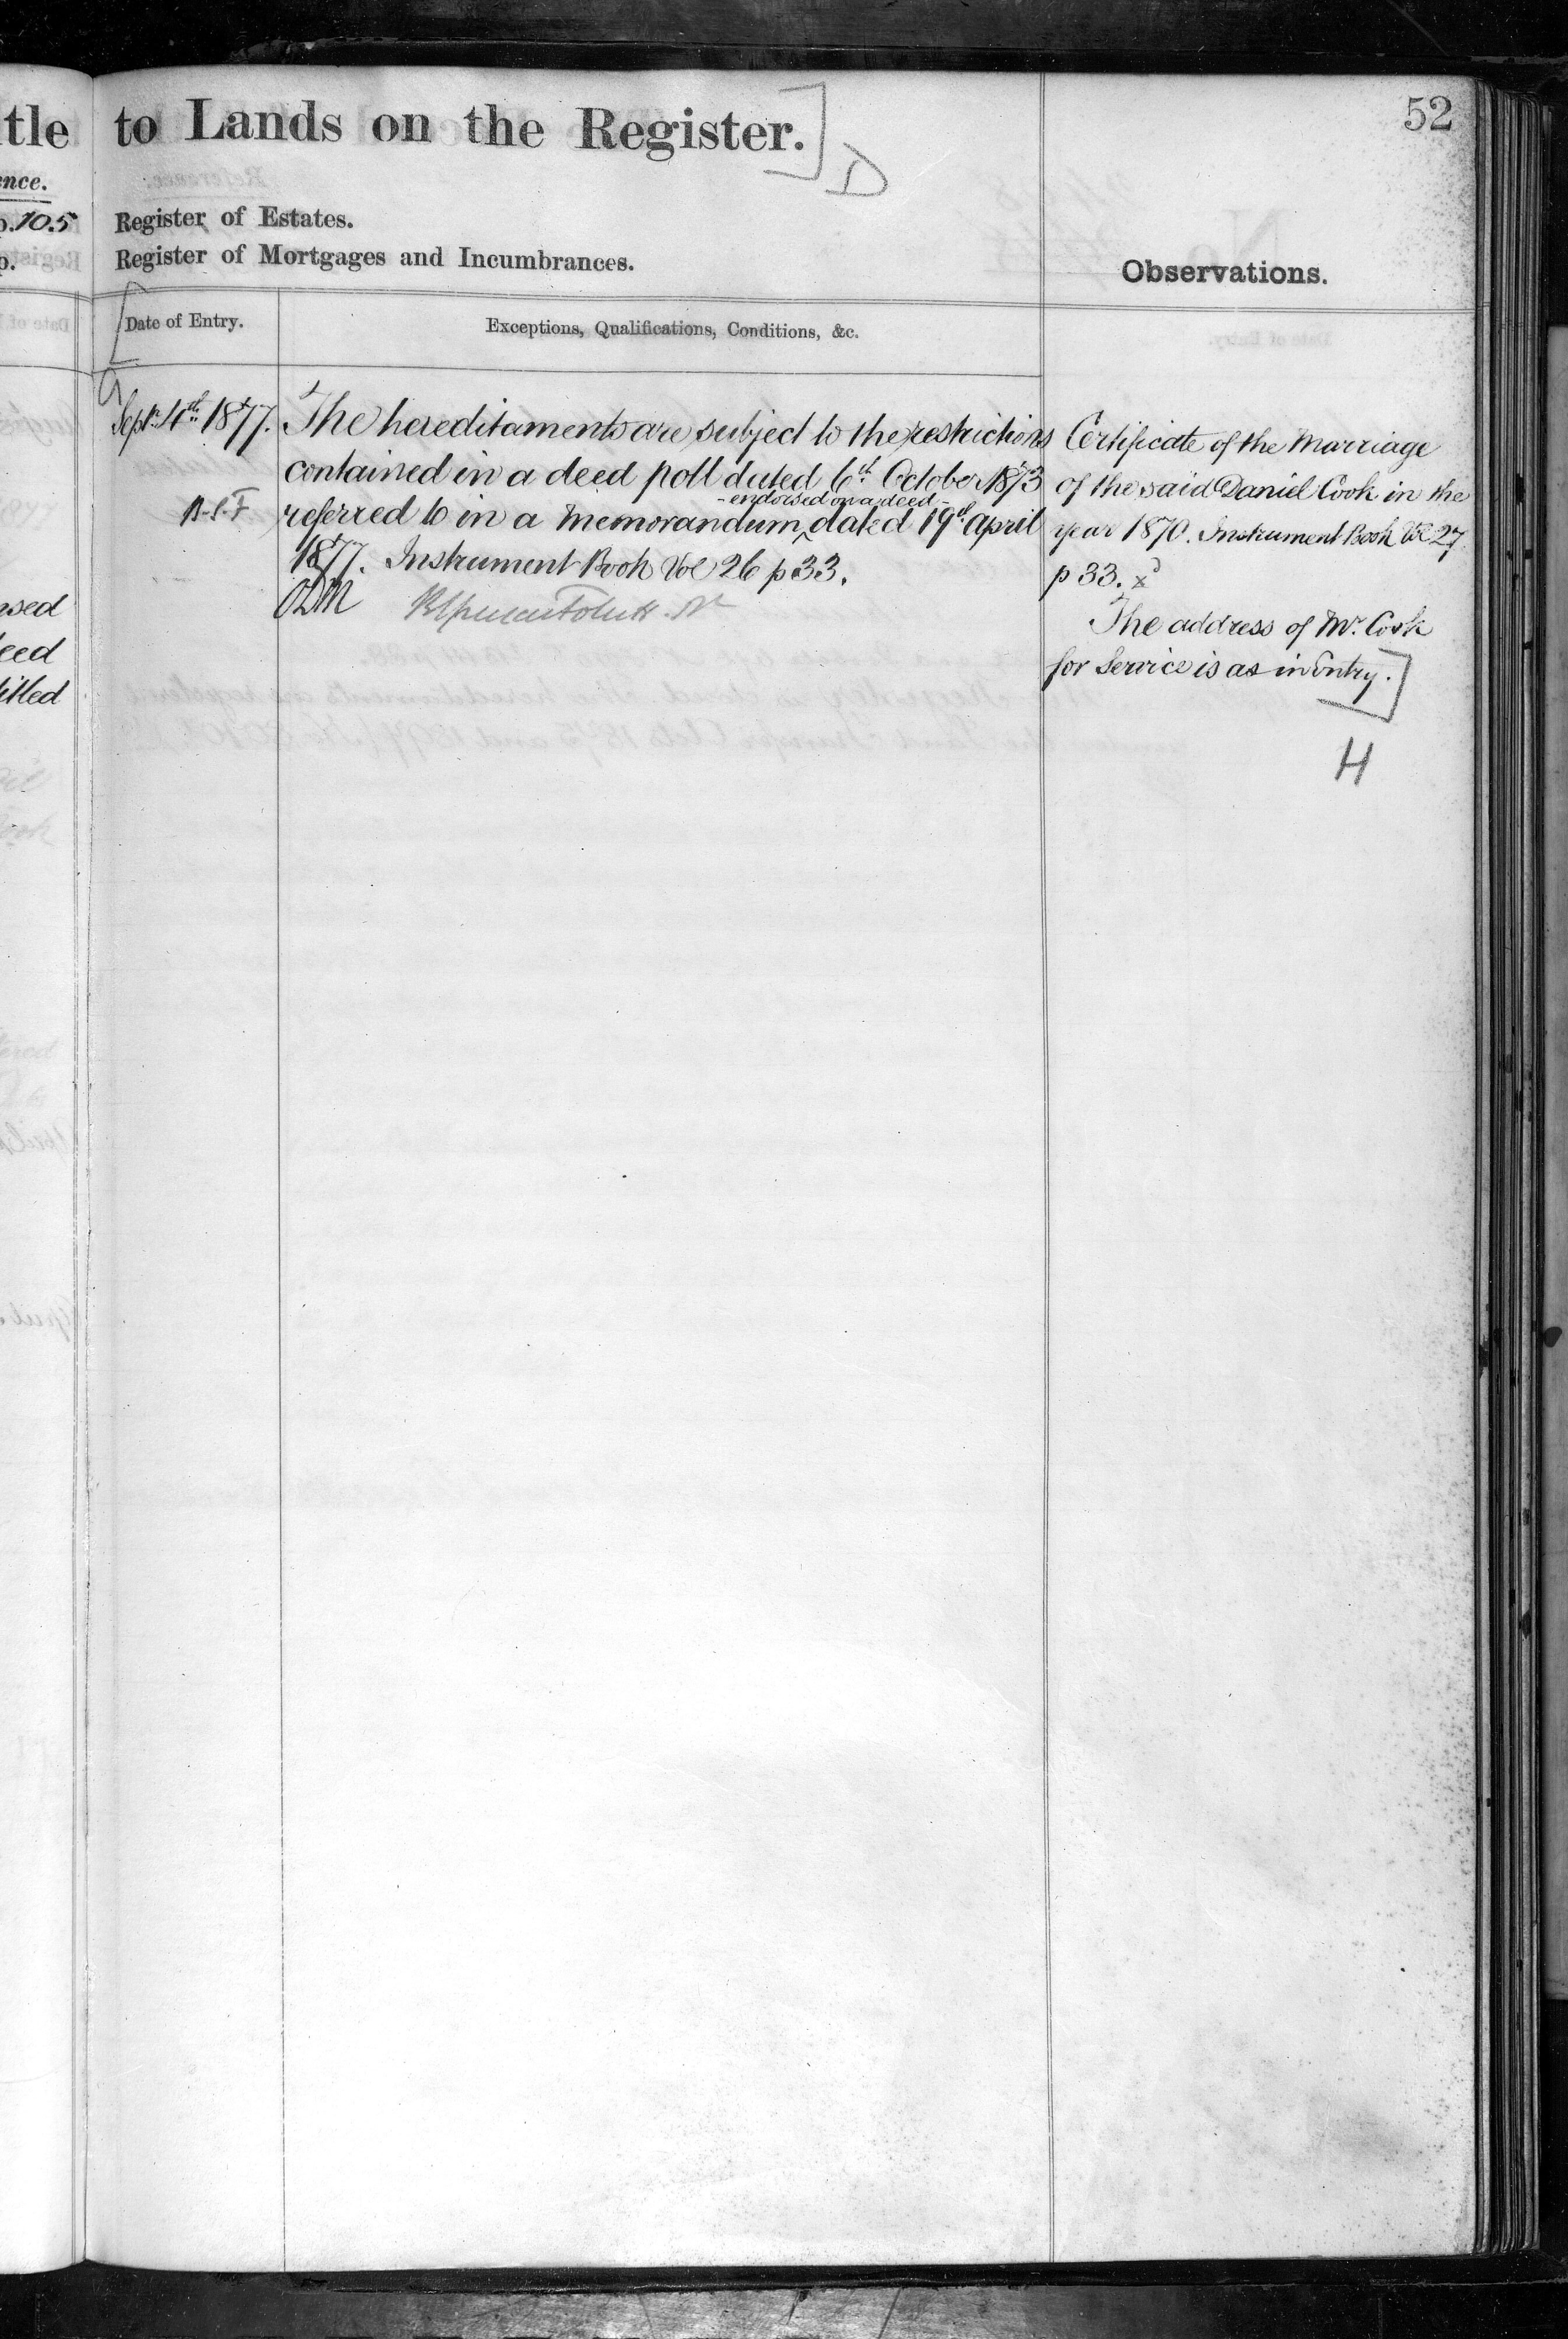 tle to Lands on the Register.] D
52
ence.
p. 105 Register of Estates.
p. Register of Mortgages and Incumbrances.
Observations.
[Date of Entry.
Exceptions, Qualifications, Conditions, &c.
G
Septr. 4th. 1877.
The hereditaments are subject to the restrictions
contained in a deed poll dated 6th. October 1873
- endorsed on a deed -
referred to in a Memorandum ^ dated 19th April
1877. Instrument Book Vol 26 p 33.
Certificate of the Marriage
of the said Daniel Cook in the
year 1870. Instrument Book Vol 27
p 33. x
The address of Mr. Cook
for Service is as in Entry.]
H
nsed
eed
itled